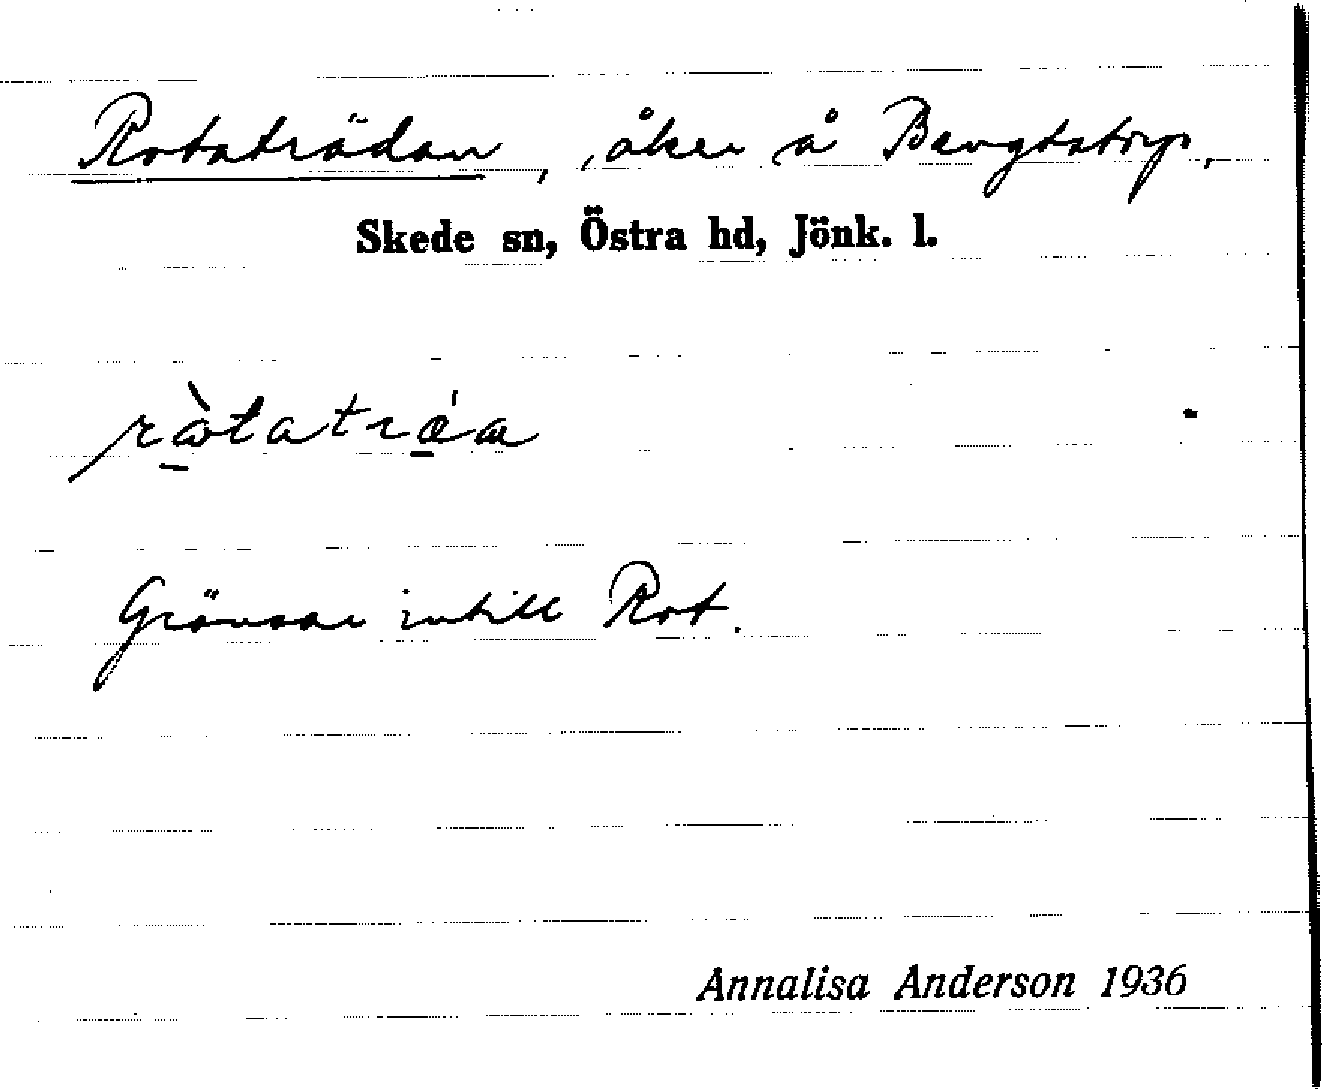 Rotaträdan, åker å Bengtstorp.
Skede sn, Östra hd, Jönk. l.
Gränsar intill Rot.
Annalisa Anderson 1936